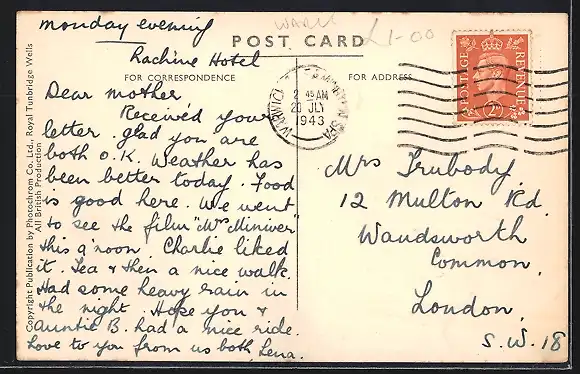 monday evening
WARK
£1-00
Rachine Hotel
POST CARD
FOR CORRESPONDENCE
FOR ADDRESS
Dear mother
Received your
letter. glad you are
both O.K. Weather has
been better today. Food
is good here. We went
to see the film "Mrs Miniver"
this a'noon. Charlie liked
it. Tea & then a nice walk.
Had some heavy rain in
the night. Hope you &
Auntie B. had a nice ride.
Love to you from us both, Lena.
Copyright Publication by Photochrom Co. Ltd., Royal Tunbridge Wells
All British Production
WARWICK
SPA
2 45 AM
20 JLY
1943
POSTAGE
REVENUE
2D
Mrs Trubody.
12 Multon Rd.
Wandsworth
Common.
London.
S.W. 18